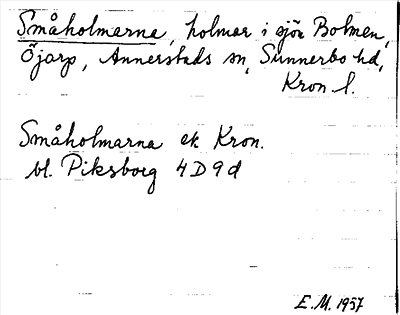 Småholmarna, holmar i sjön Bolmen,
Öjarp, Annerstads sn, Sunnerbo hd,
Kron l.
Småholmarna ek Kron.
bl. Piksborg 4D9d
E.M. 1957